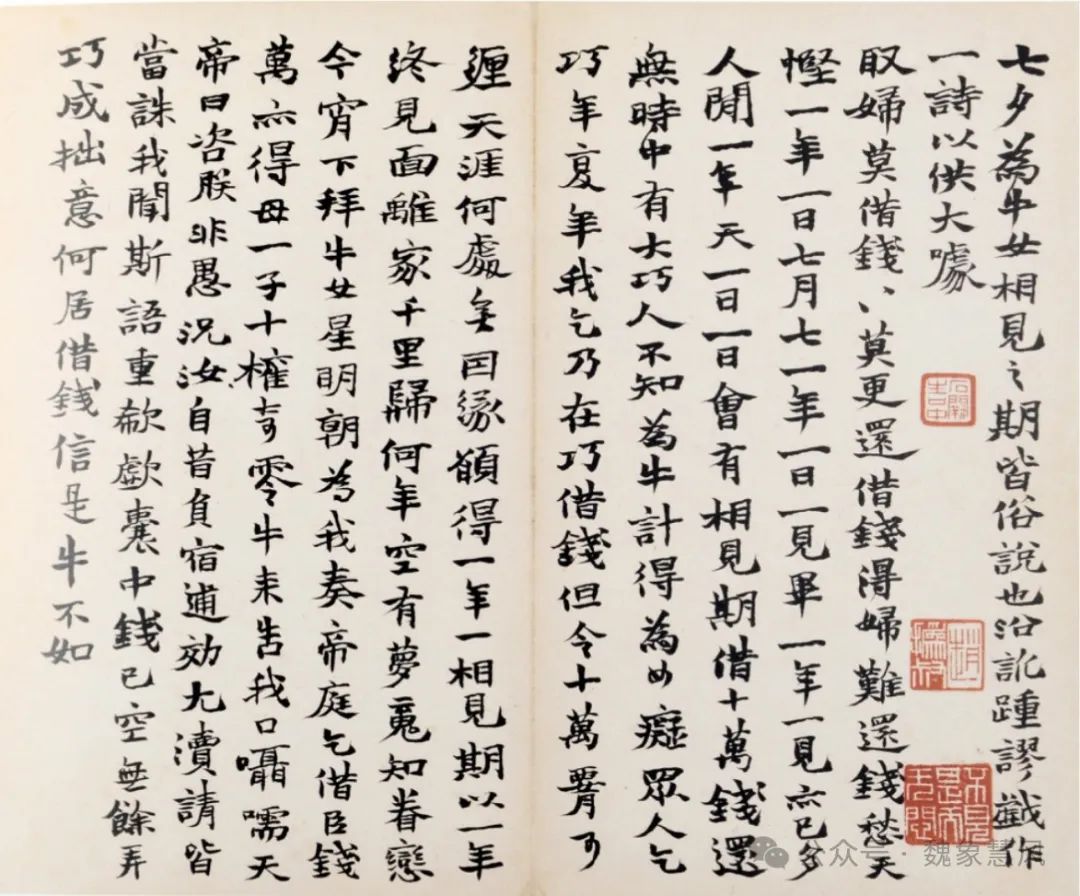 七夕為牛女相見之期皆俗說也沿訛踵謬戲作
一詩以供大噱
取婦莫借錢〻莫更還借錢得婦難還錢愁天
慳一年一日七月七一年一日一見畢一年一見亦已多
人間一年天一日一日會有相見期借十萬錢還
無時中有大巧人不知為牛計得為女癡眾人乞
巧年復年我乞乃在巧借錢但令十萬腰可
纏天涯何處無因緣願得一年一相見期以一年
終見面離家千里歸何年空有夢魂知眷戀
今宵下拜牛女星明朝為我奏帝庭乞借臣錢
萬亦得母一子十權奇零牛來告我口囁嚅天
帝曰咨朕非愚況汝自昔負宿逋效尤瀆請皆
當誅我聞斯語重欷歔囊中錢已空無餘弄
巧成拙意何居借錢信是牛不如
趙撝叔
公众号 · 魏象慧風